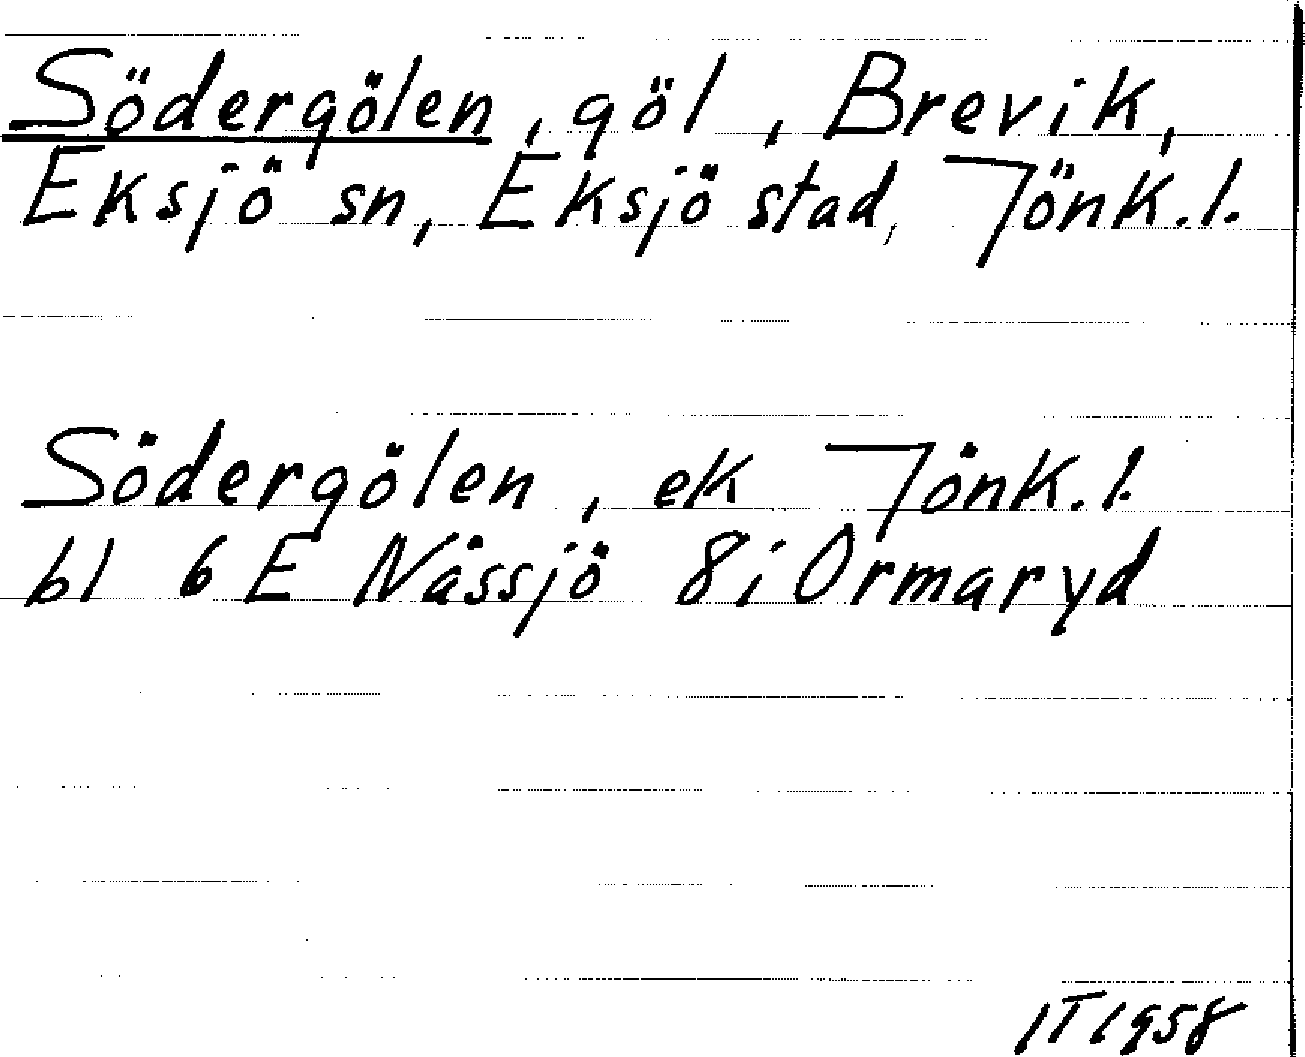 Södergölen, göl, Brevik,
Eksjö sn, Eksjö stad, Jönk.l.
Södergölen, ek Jönk.l.
bl 6 E Nässjö 8i Ormaryd
IT 1958